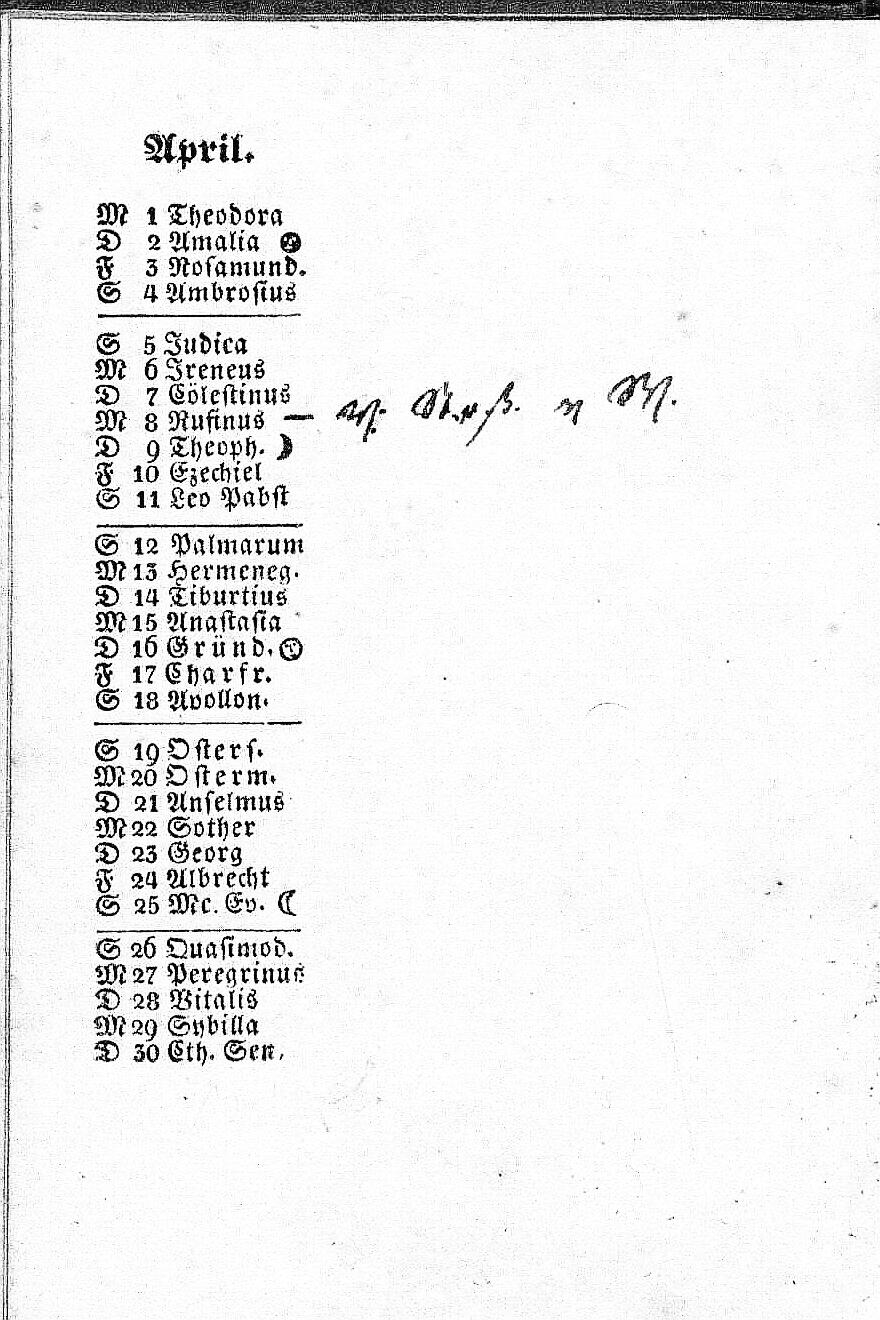 April.
M 1 Theodora
D 2 Amalia
F 3 Rosamund.
S 4 Ambrosius
S 5 Judica
M 6 Ireneus
D 7 Cölestinus
M 8 Rufinus —
D 9 Theoph.
F 10 Ezechiel
S 11 Leo Pabst
S 12 Palmarum
M 13 Hermeneg.
D 14 Tiburtius
M 15 Anastasia
D 16 Gründ.
F 17 Charfr.
S 18 Apollon.
S 19 Osters.
M 20 Osterm.
D 21 Anselmus
M 22 Sother
D 23 Georg
F 24 Albrecht
S 25 Mc. Ev.
S 26 Quasimod.
M 27 Peregrinus
D 28 Vitalis
M 29 Sybilla
D 30 Cth. Sen.